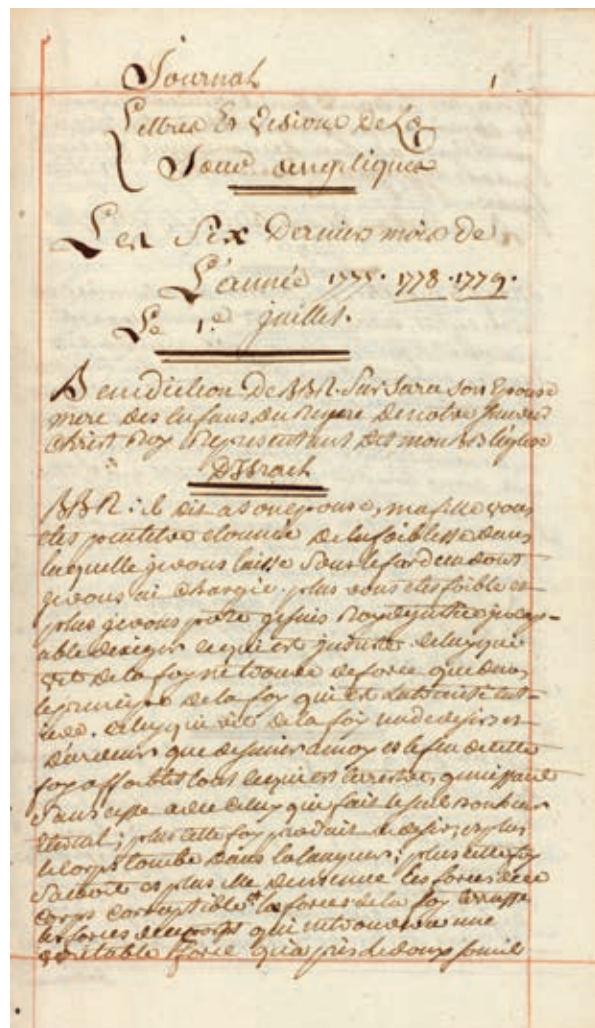 Journal 1
Lettres Et Visions De La
Soeur angelique
Les Six Dernier mois de
L'année 1777. 1778. 1779.
Le 1.e juillet.
Benediction De sur Sara son Epouse
mere des Enfans du Regne De notre
Christ Roy Representant Des L'église
D'Israel
il dit a son epouse, ma fille vous
etes peutetre etonnée de la foiblesse dans
laquelle je vous laisse sous le fardeau dont
je vous ai chargée. plus vous etes foible et
plus je vous porte je suis Roy de justice incap-
able d'exiger ce qui est injuste. celuy qui
vit de la foy ne trouve de force que dans
le principe de la foy qui est
celuy qui vit de la foy
que de s'unir a moy et le feu de cette
foy affoiblit tout ce qui est terrestre, s'unissant
sans cesse avec celuy qui fait le seul bonheur
Eternel; plus cette foy produit de desir, et plus
le corps tombe dans la langueur; plus cette foy
s'accroit et plus elle les forces de ce
corps corruptible. les forces de la foy terrasse
les forces du corps qui ne trouve une
veritable force qu'apres le doux someil